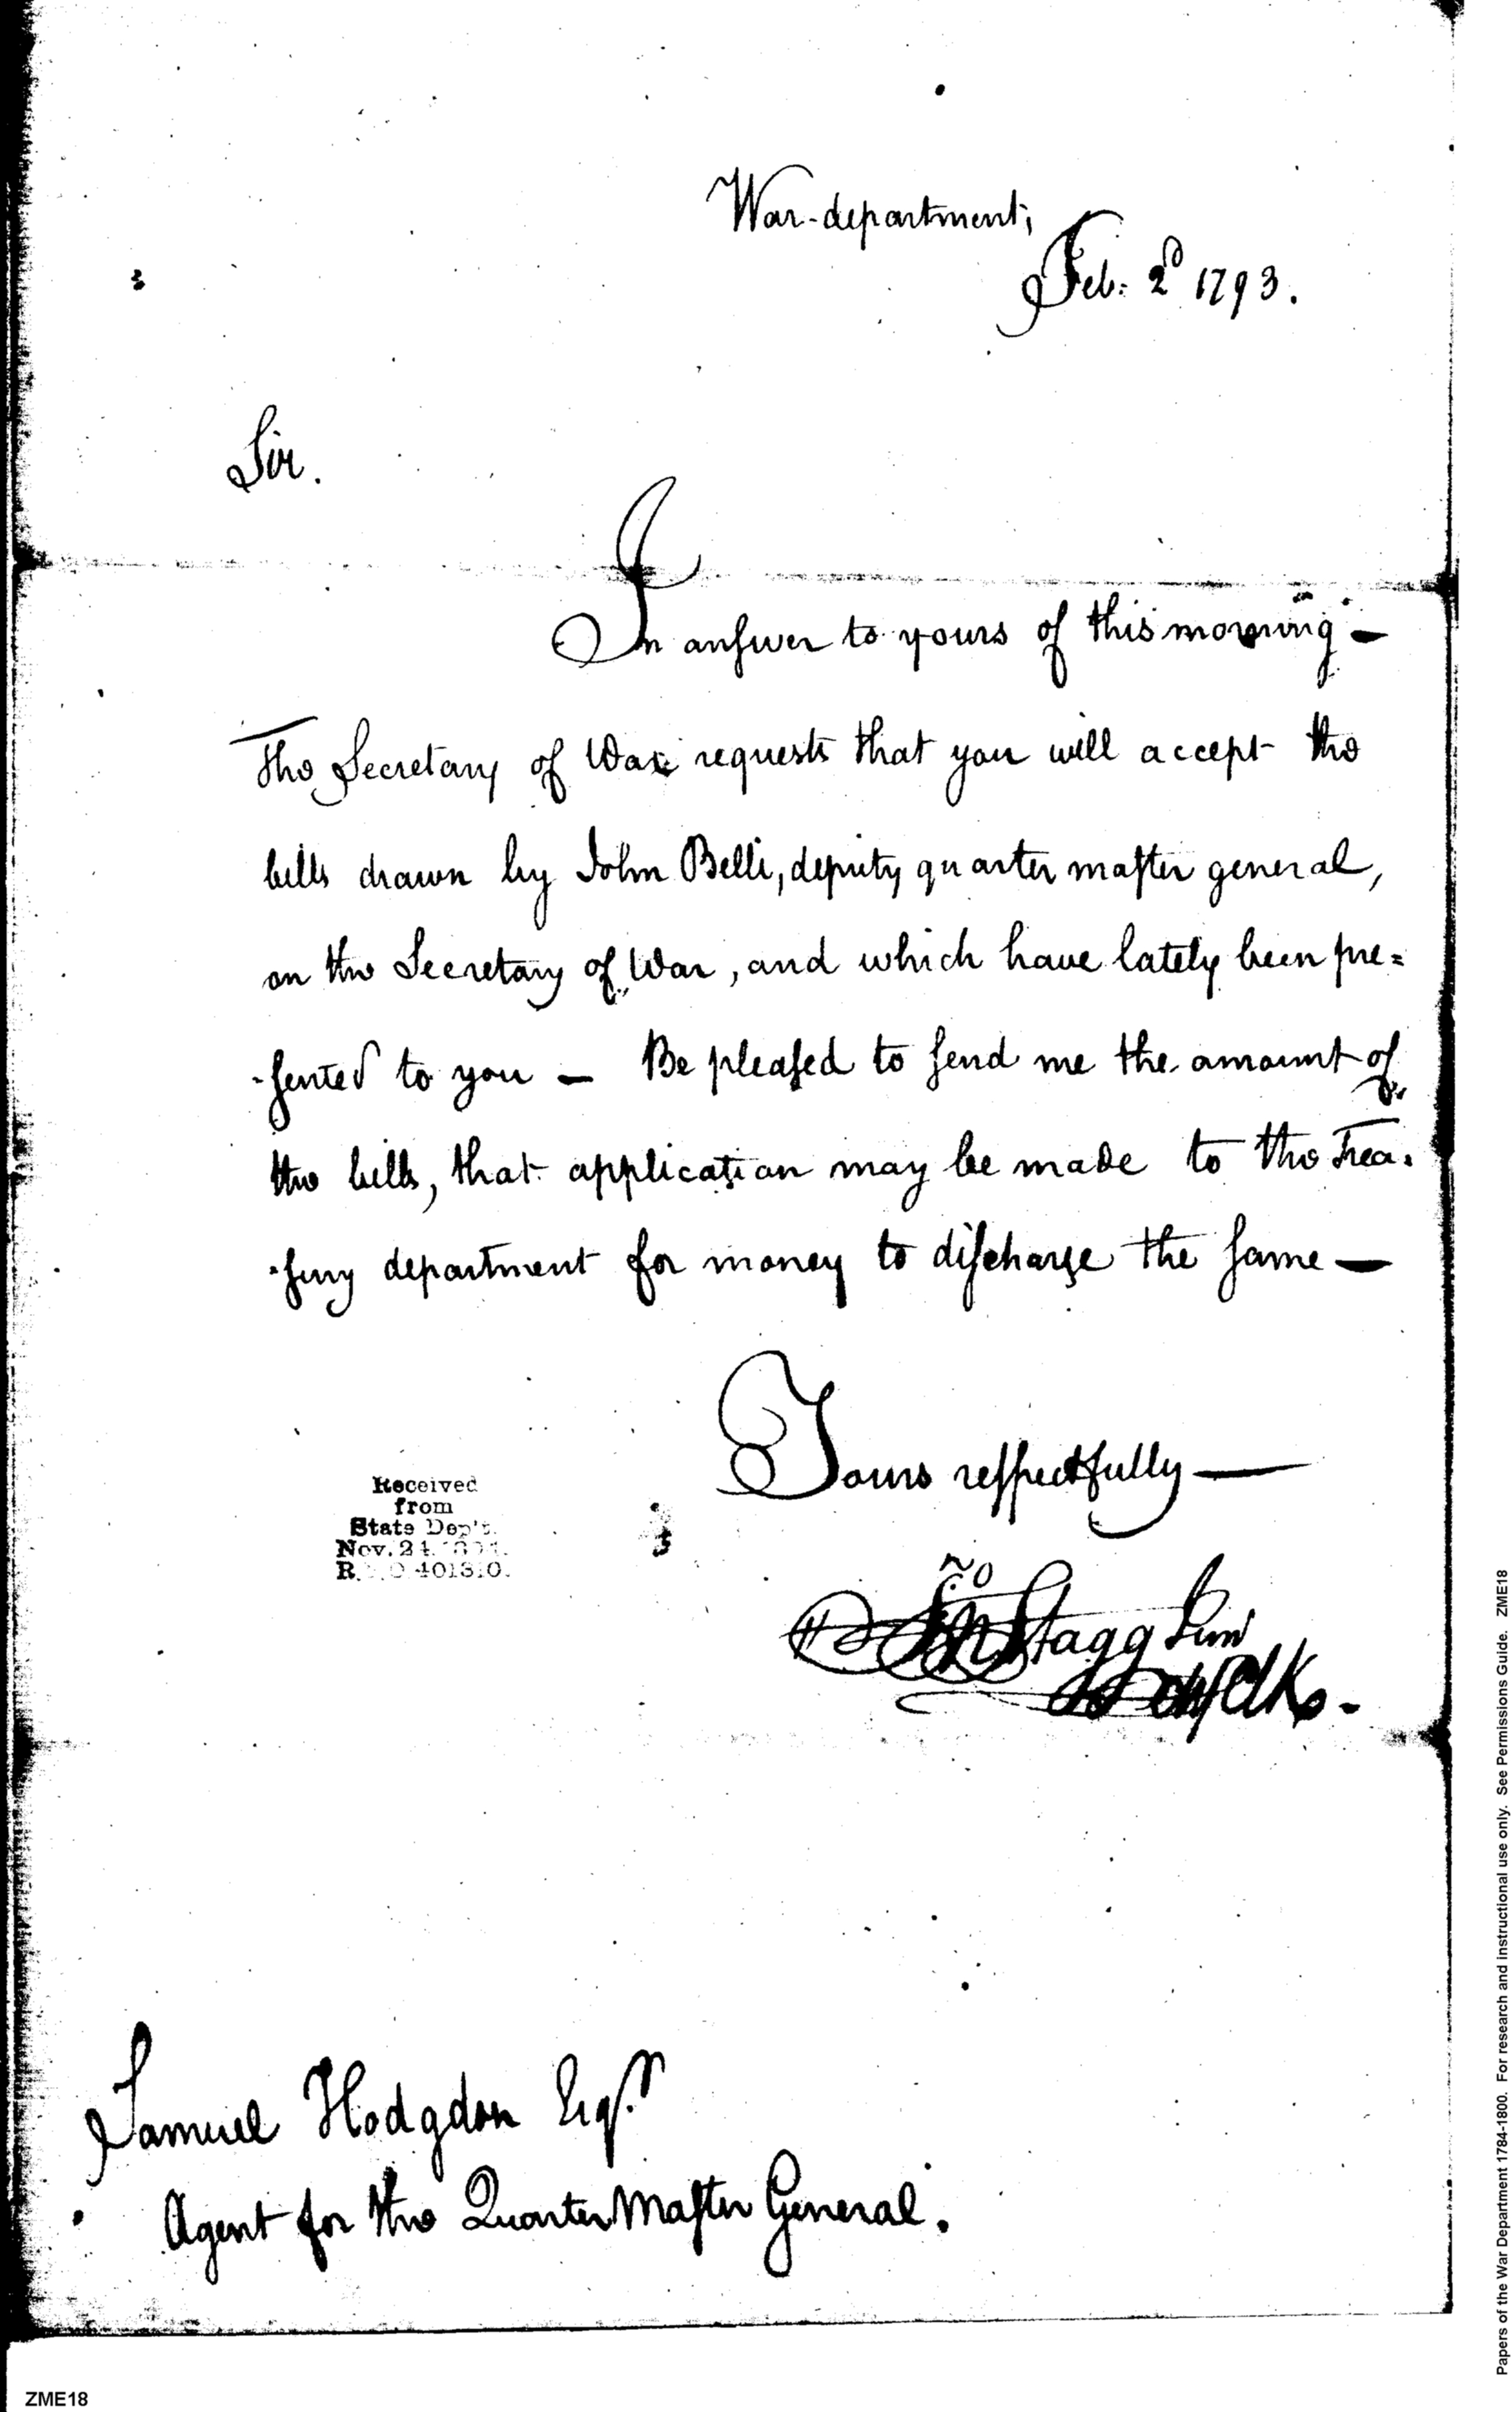 War-department,
Feb: 2d 1793.
Sir.
In answer to yours of this morning —
The Secretary of War requests that you will accept the
bills drawn by John Belli, deputy quarter master general,
on the Secretary of War, and which have lately been pre=
-sented to you — Be pleased to send me the amount of
the bills, that application may be made to the Trea-
-sury department for money to discharge the same —
Yours respectfully —
Received
from
State Dep't.
Nov. 24.
R. 401310.
Jno Stagg Junr
Chf Clk. -
Samuel Hodgdon Esqr.
Agent for the Quarter Master General.
ZME18
Papers of the War Department 1784-1800. For research and instructional use only. See Permissions Guide. ZME18